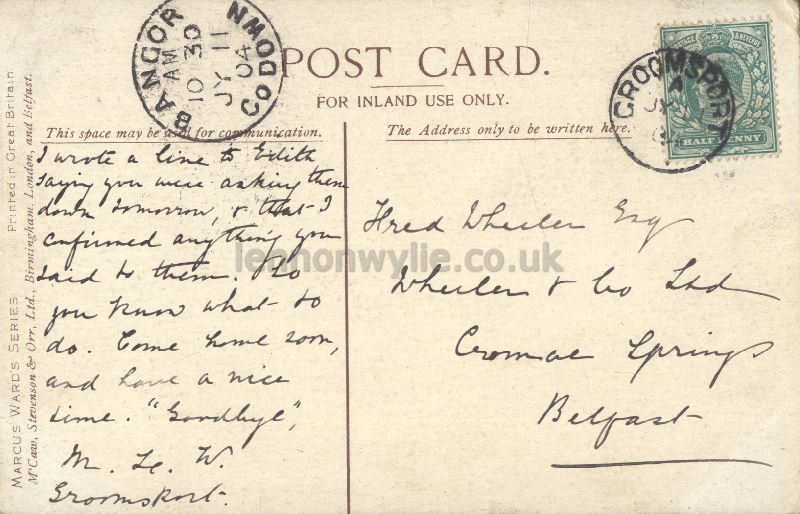 BANGOR CO DOWN
10 30 AM
JY 11
04
POST CARD.
FOR INLAND USE ONLY.
GROOMSPORT
A
JY
POSTAGE & REVENUE
HALF PENNY
This space may be used for communication.
The Address only to be written here.
I wrote a line to Edith
saying you were asking them
down tomorrow, & that I
confirmed anything you
said to them. So
you know what to
do. Come home soon,
and have a nice
time. "Goodbye",
M. Le. W.
Groomsport.
Fred Wheeler Esq
Wheeler & Co Ltd
Cromac Springs
Belfast
lennonwylie.co.uk
MARCUS WARD'S SERIES Printed in Great Britain
McCaw, Stevenson & Orr, Ltd., Birmingham, London, and Belfast.